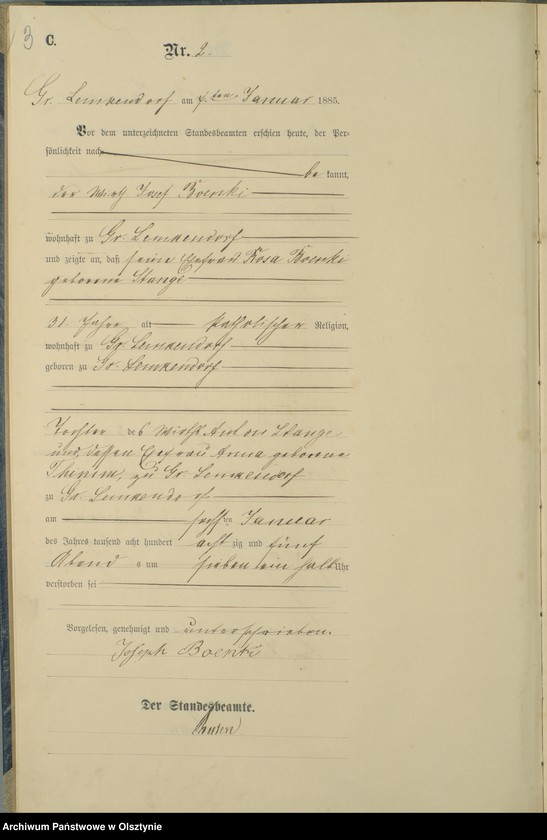 3
C.
Nr. 2.
Gr. Lemkendorf am ten Januar 1885.
Vor dem unterzeichneten Standesbeamten erschien heute, der Per-
sönlichkeit nach
be kannt,
der Wirth Josef Boenki
wohnhaft zu Gr. Lemkendorf
und zeigte an, daß seine Ehefrau Rosa Boenki
geborene Stange
31 Jahre alt katholischer Religion,
wohnhaft zu Gr. Lemkendorf
geboren zu Gr. Lemkendorf
Tochter des Wirths Anton Stange
und dessen Ehefrau Anna geborene
zu Gr. Lemkendorf
zu Gr. Lemkendorf
am sechsten Januar
des Jahres tausend acht hundert acht zig und fünf
Abend s um sieben ein halb Uhr
verstorben sei
Vorgelesen, genehmigt und unterschrieben.
Joseph Boenki
Der Standesbeamte.
Archiwum Państwowe w Olsztynie